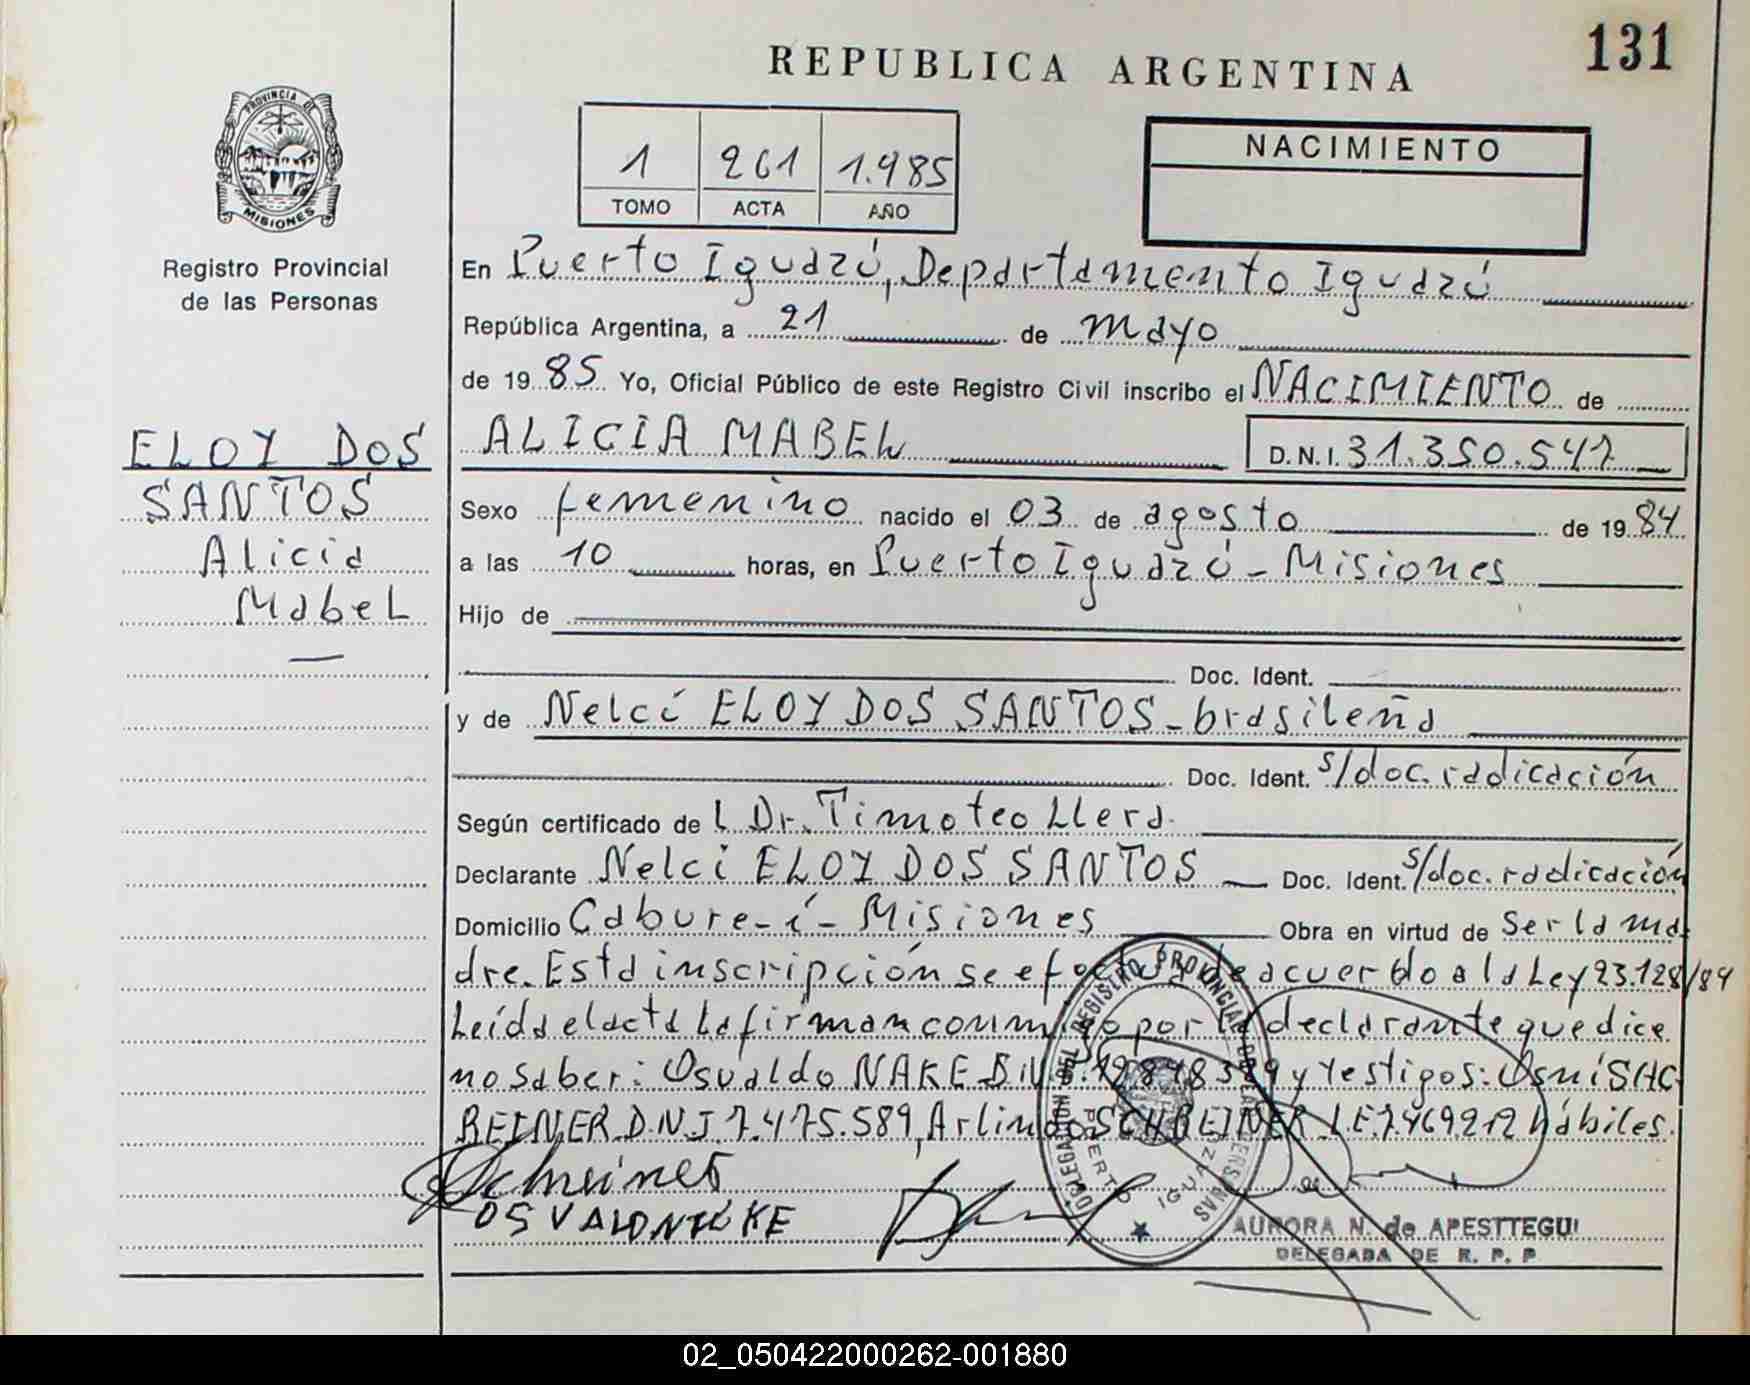 131
REPUBLICA ARGENTINA
PROVINCIA DE
MISIONES
Registro Provincial
de las Personas
1 261 1.985
TOMO ACTA AÑO
NACIMIENTO
ELOY DOS
SANTOS
Alicia
Mabel
En Puerto Iguazú, Departamento Iguazú
República Argentina, a 21 de mayo
de 1985 Yo, Oficial Público de este Registro Civil inscribo el NACIMIENTO de
ALICIA MABEL D.N.I. 31.350.547
Sexo femenino nacido el 03 de agosto de 1984
a las 10 horas, en Puerto Iguazú - Misiones
Hijo de
Doc. Ident.
y de Nelcí ELOY DOS SANTOS - brasileña
Doc. Ident. s/doc. radicación
Según certificado de l Dr. Timoteo Llera
Declarante Nelci ELOY DOS SANTOS Doc. Ident. s/doc. radicación
Domicilio Cabure-í - Misiones Obra en virtud de Ser la ma
dre. Esta inscripción se efectúa de acuerdo a la Ley 23.128/84
Leída el acta la firman conmigo por la declarante que dice
no saber: Osvaldo NAKE y testigos: Osní SHC
REINER D.N.I 7.475.589, Arlindo SCHREINER L.E 7.469212 hábiles.
DELEGACION DEL REGISTRO PROVINCIAL DE LAS PERSONAS
PUERTO IGUAZU
AURORA N. de APESTTEGUI
DELEGADA DE R. P. P
02_050422000262-001880